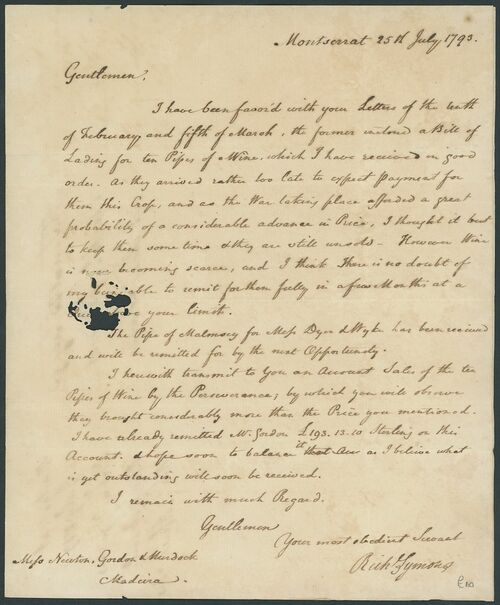 Montserrat 25th July, 1793.
Gentlemen,
I have been favord with your Letters of the tenth
of February, and fifth of March, the former inclosed a Bill of
Lading for ten Pipes of Wine, which I have received in good
order. As they arrived rather too late to expect payment for
them this Crop, and as the War taking place afforded a great
probability of a considerable advance in Price, I thought it best
to keep them some time & they are still unsold - However Wine
is now becoming scarce, and I think there is no doubt of
my being able to remit for them fully in a few Months at a
your Limit.
The Pipe of Malmsey for Messs Dyer & Wyke has been received
and will be remitted for by the next Opportunity.
I herewith transmit to You an Account Sales of the ten
Pipes of Wine by the Perseverance; by which you will observe
they brought considerably more than the Price you mentioned.
I have already remitted Mr. Gordon £193.13.10 Sterling on this
Account. & hope soon to balance it as I believe what
is yet outstanding will soon be received.
I remain with much Regard.
Gentlemen
Your most obedient Servant
Richd Symons
Messs Newton, Gordon & Murdock
Madeira.